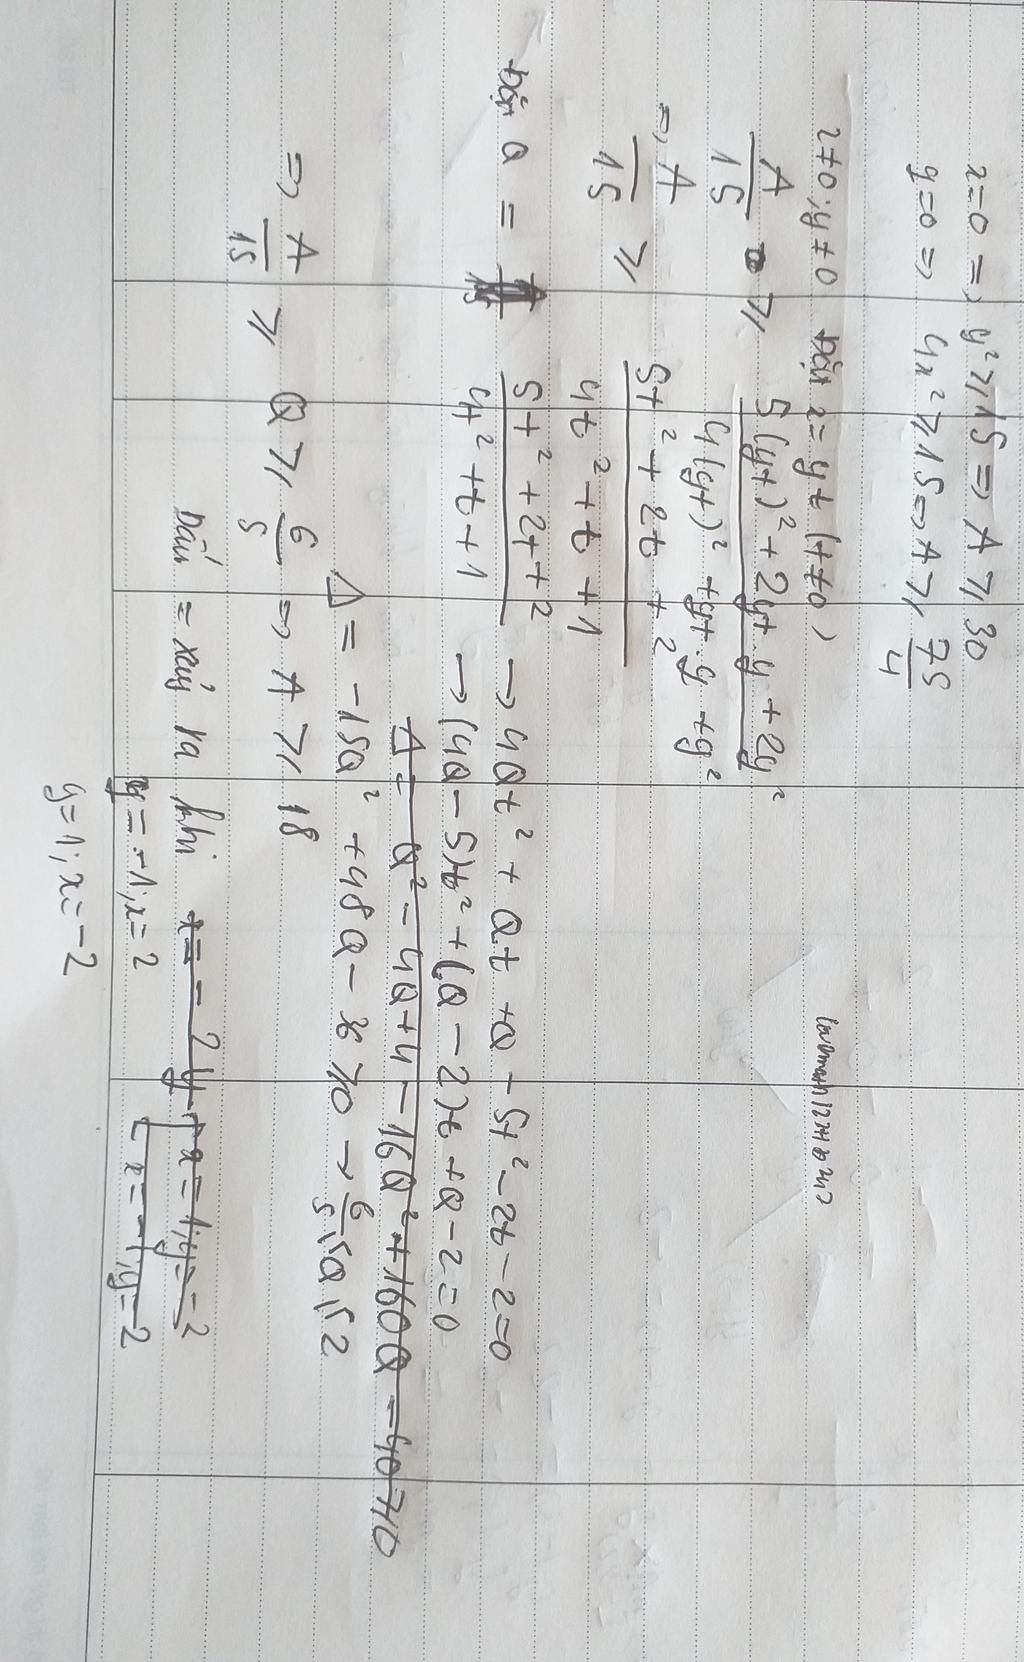 x=0 => y² ≥ 15 => A ≥ 30
y=0 => 4x² ≥ 15 => A ≥ 75/4
x≠0; y≠0 Đặt x = yt (t≠0)
A/15 ≥ (5(yt)² + 2yt.y + 2y²)/(4(yt)² + yt.y + y²)
=> A/15 ≥ (5t² + 2t + 2)/(4t² + t + 1)
Đặt Q = (5t² + 2t + 2)/(4t² + t + 1) → 4Qt² + Qt + Q - 5t² - 2t - 2 = 0
→ (4Q - 5)t² + (Q - 2)t + Q - 2 = 0
Δ = Q² - 4Q + 4 - 16Q² + 160Q - 40 ≥ 0
Δ = -15Q² + 48Q - 36 ≥ 0 → 6/5 ≤ Q ≤ 2
=> A/15 ≥ Q ≥ 6/5 => A ≥ 18
Dấu = xảy ra khi x = -2y [x = 1; y = -2
y = -1; x = 2 [x = -1; y = 2
y = 1; x = -2